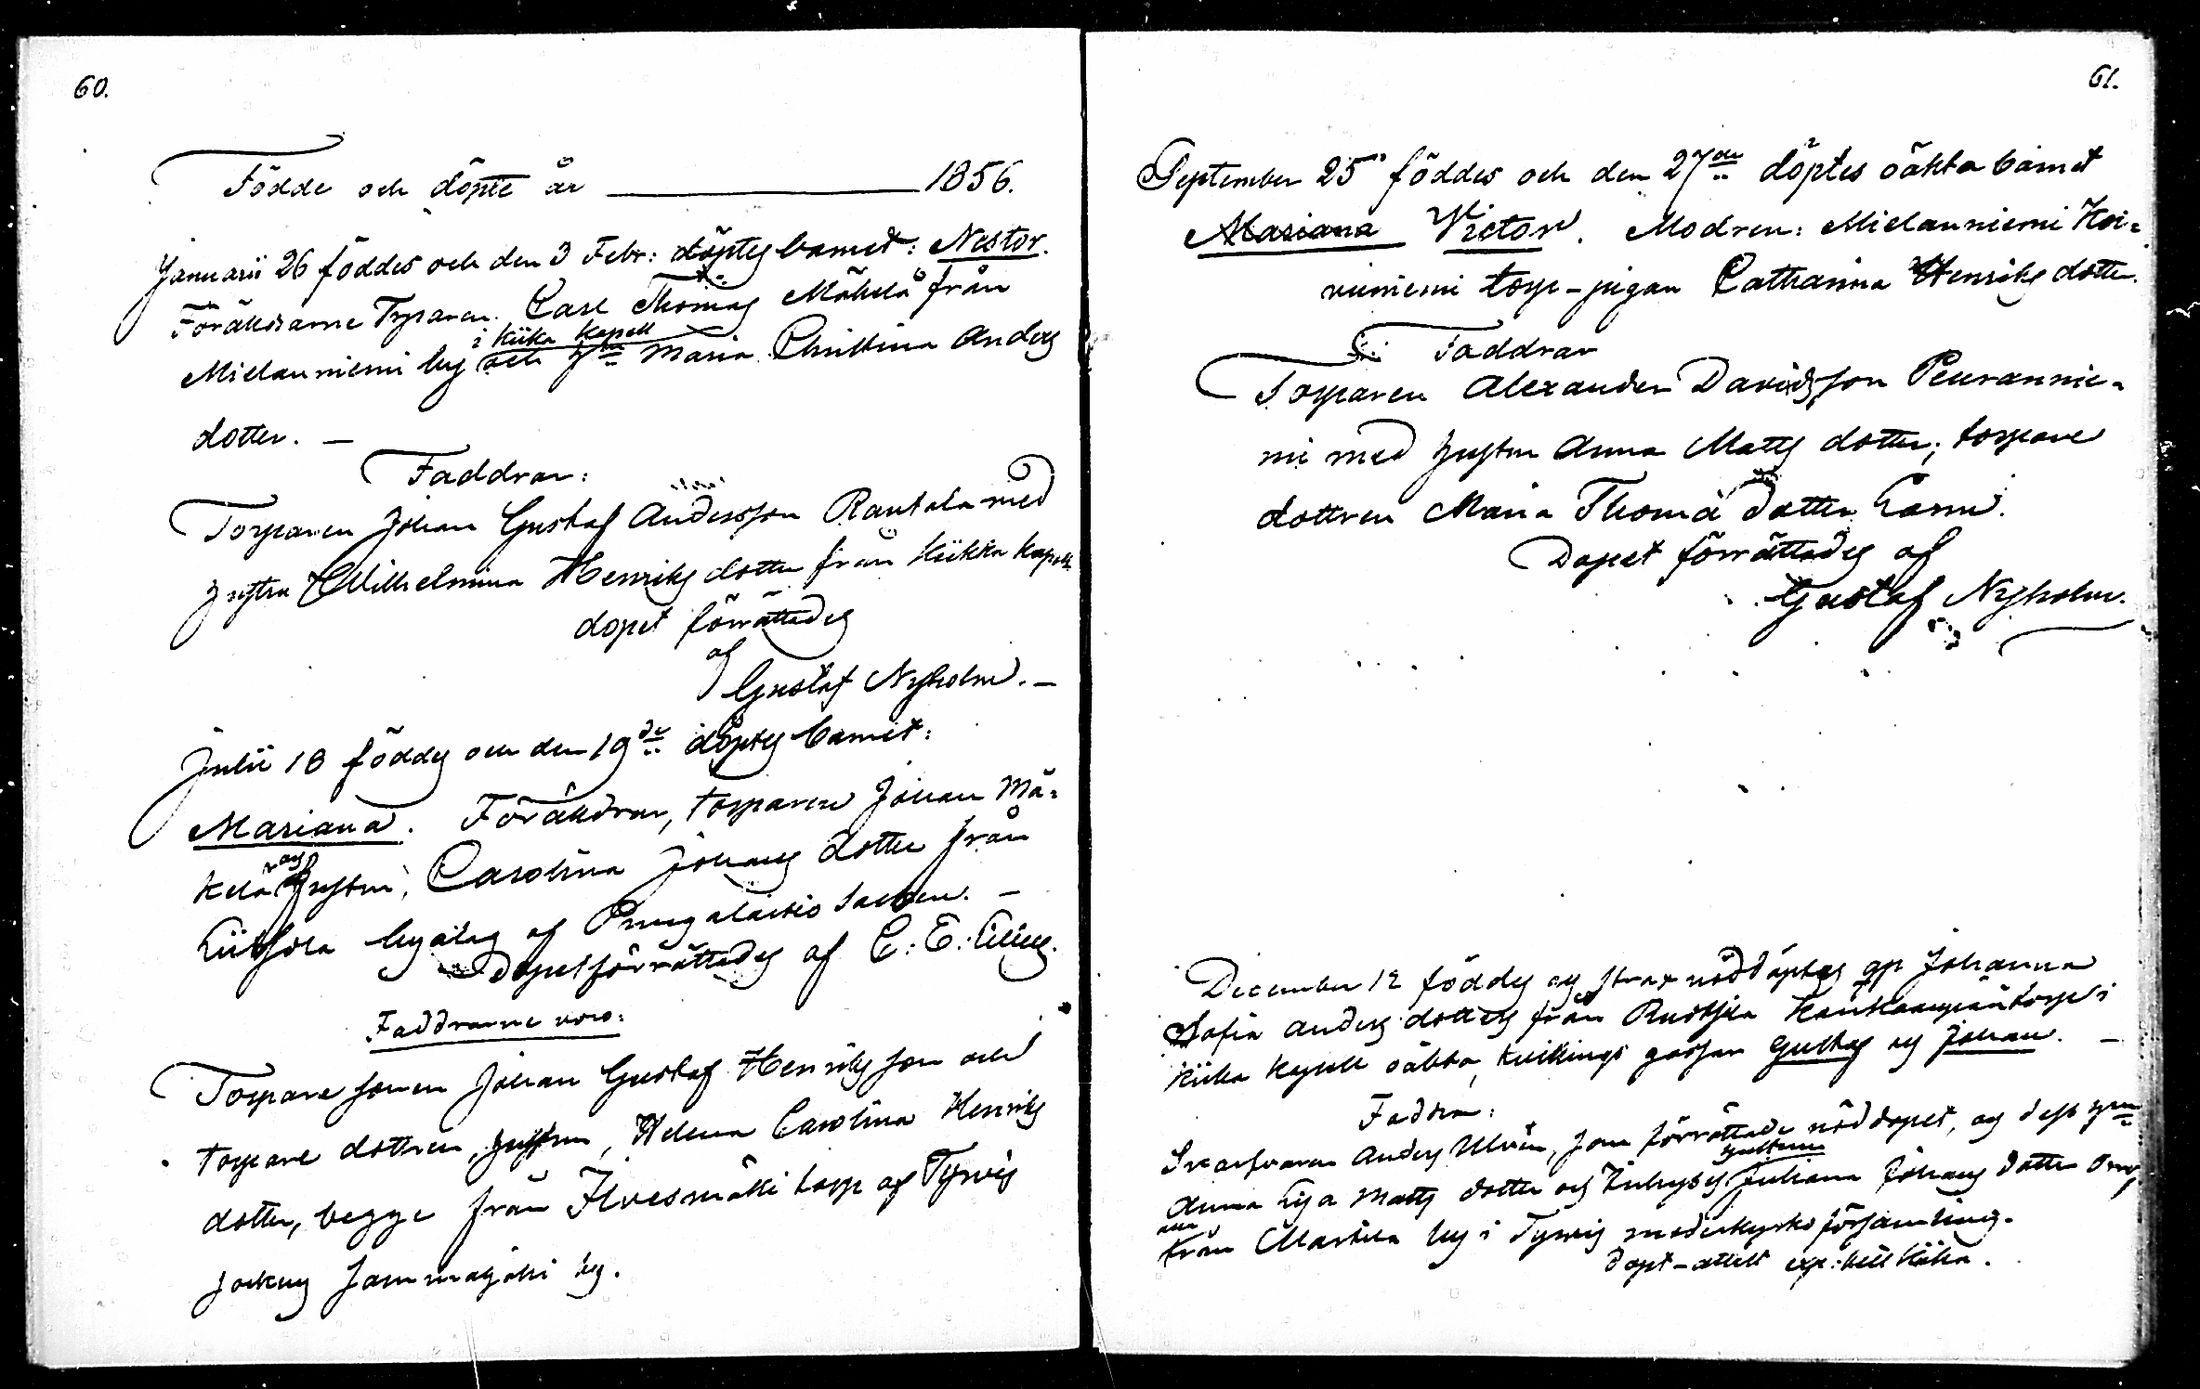 60.
Födde och döpte år 1856.
Januarii 26 föddes och den 3 Febr: döptes barnet: Nestor.
Föräldrarne Torparen Carl Thomas Mäkelä från
i Kiika Kapell
Mielauniemi by och hu Maria Christina Anders
dotter. —
Faddrar:
Torparen Johan Gustaf Andersson Rantala med
hustru Wilhelmina Henriks dotter från Kiikka Kapell
dopet förrättades
af
Gustaf Nyholm. —
Julii 18 föddes och den 19de döptes barnet:
Mariana. Föräldrar, torparen Johan Mä-
kelä och hustru, Carolina Johans dotter från
by af socken. —
Dopet förrättades af C: E:
Faddrarne voro:
Torpare sonen Johan Gustaf Henriksson och
torpare dottren, Helena Carolina Henriks
dotter, begge från Ilvesmäki torp af Tyrvis
socken Sammaljoki by.
61.
September 25 föddes och den 27de döptes oäkta barnet
Mariana Victor. Modren: Mielauniemi Koi-
viniemi torp-pigan Catharina Henriks dotter.
Faddrar
Torparen Alexander Davidsson Peuranie-
mi med hustru Anna Matts dotter; torpare
dottren Maria Thomä dotter
Dopet förrättades af
Gustaf Nyholm.
December 12 föddes och strax nöddöptes Johanna
Sofia Anders dotters från torp i
Kiika Kapell oäkta tvillings gossar Gustaf och Johan. —
Faddrar:
Anders Ulvén, som förrättade nöddopet, och dess hu
hustrun
Anna Lisa Matts dotter och Juliana Johans dotter
från Marttila by i Tyrvis moderkyrko församling.
Dopt-attest exp: till Kiika.